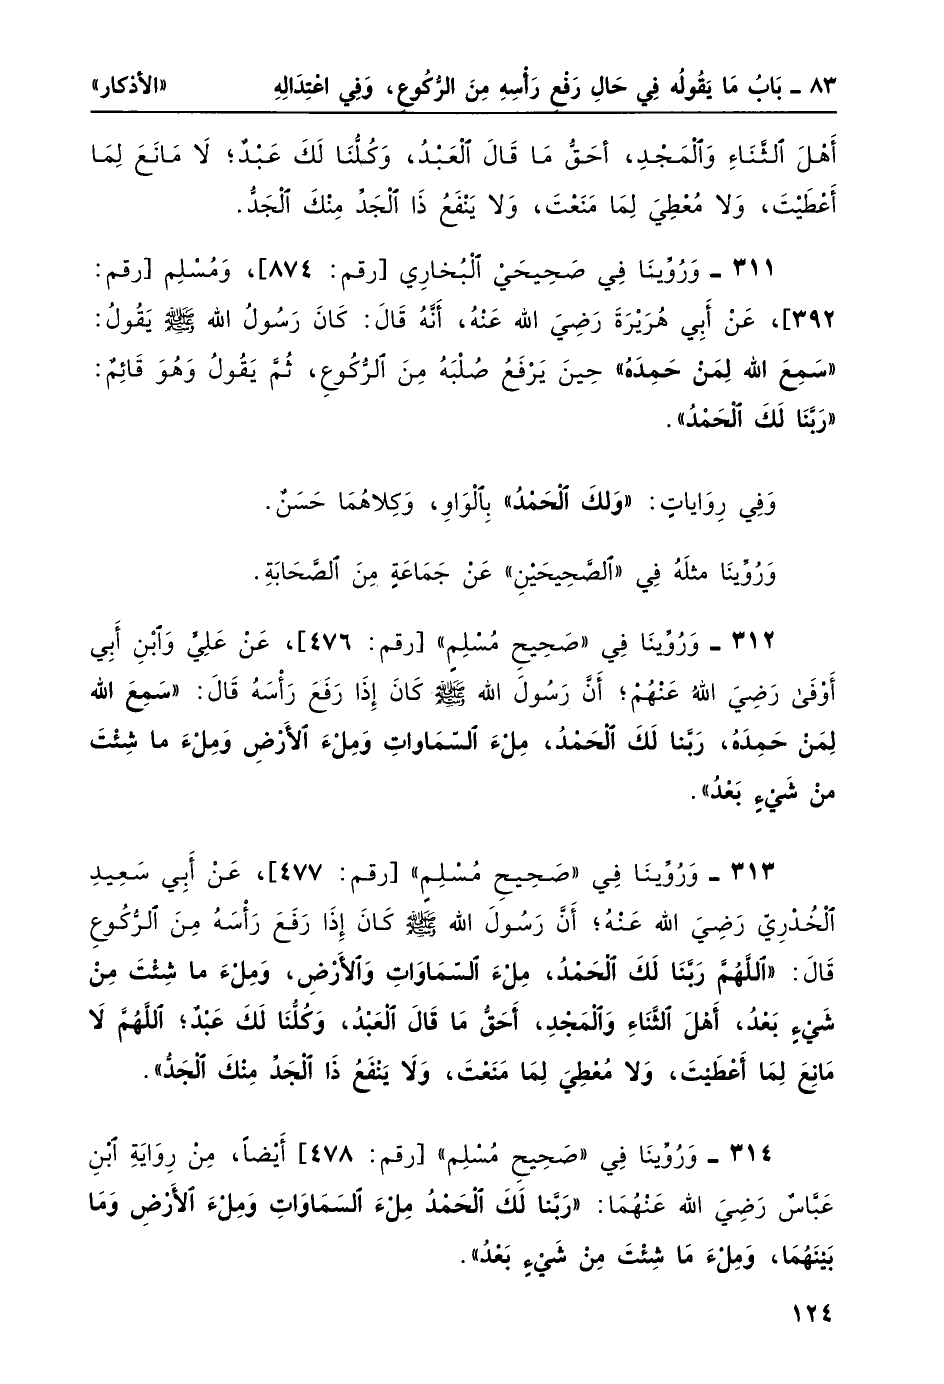 ٨٣ ـ بَابُ مَا يَقُولُه فِي حَالِ رَفْعِ رَأْسِهِ مِنَ الرُّكُوعِ، وَفِي اعْتِدَالِهِ «الأذكار»
أَهْلَ ٱلثَّنَاءِ وَٱلْمَجْدِ، أحَقُّ مَا قَالَ ٱلْعَبْدُ، وَكُلُّنَا لَكَ عَبْدٌ؛ لَا مَانَعَ لِمَا
أَعْطَيْتَ، وَلا مُعْطِيَ لِمَا مَنَعْتَ، وَلا يَنْفَعُ ذَا ٱلْجَدِّ مِنْكَ ٱلْجَدُّ.
٣١١ ـ وَرُوِّينَا فِي صَحِيحَيْ ٱلْبُخَارِي [رقم: ٨٧٤]، وَمُسْلِم [رقم:
٣٩٢]، عَنْ أَبِي هُرَيْرَةَ رَضِيَ الله عَنْهُ، أَنَّهُ قَالَ: كَانَ رَسُولُ الله ﷺ يَقُولُ:
«سَمِعَ الله لِمَنْ حَمِدَهُ» حِينَ يَرْفَعُ صُلْبَهُ مِنَ ٱلرُّكُوعِ، ثُمَّ يَقُولُ وَهُوَ قَائِمٌ:
«رَبَّنَا لَكَ ٱلْحَمْدُ».
وَفِي رِوَاياتٍ: «وَلكَ ٱلْحَمْدُ» بِٱلْوَاوِ، وَكِلاهُمَا حَسَنٌ.
وَرُوِّينَا مثلَهُ فِي «ٱلصَّحِيحَيْنِ» عَنْ جَمَاعَةٍ مِنَ ٱلصَّحَابَةِ.
٣١٢ ـ وَرُوِّينَا فِي «صَحِيحِ مُسْلِمٍ» [رقم: ٤٧٦]، عَنْ عَلِيٍّ وَٱبْنِ أَبِي
أَوْفَىٰ رَضِيَ اللهُ عَنْهُمْ؛ أَنَّ رَسُولَ الله ﷺ كَانَ إِذَا رَفَعَ رَأْسَهُ قَالَ: «سَمِعَ الله
لِمَنْ حَمِدَهُ، رَبَّنا لَكَ ٱلْحَمْدُ، مِلءَ ٱلسَّماواتِ وَمِلْءَ ٱلأَرْضِ وَمِلْءَ ما شِئْتَ
منْ شَيْءٍ بَعْدُ».
٣١٣ ـ وَرُوِّينَا فِي «صَحِيحِ مُسْلِمٍ» [رقم: ٤٧٧]، عَنْ أَبِي سَعِيدِ
ٱلْخُدْرِيّ رَضِيَ الله عَنْهُ؛ أَنَّ رَسُولَ الله ﷺ كَانَ إِذَا رَفَعَ رَأْسَهُ مِنَ ٱلرُّكُوعِ
قَالَ: «ٱللَّهُمَّ رَبَّنَا لَكَ ٱلْحَمْدُ، مِلْءَ ٱلسَّمَاوَاتِ وَٱلأَرْضِ، وَمِلْءَ ما شِئْتَ مِنْ
شَيْءٍ بَعْدُ، أَهْلَ ٱلثَّنَاءِ وَٱلْمَجْدِ، أَحَقُّ مَا قَالَ ٱلْعَبْدُ، وَكُلُّنَا لَكَ عَبْدٌ؛ ٱللَّهُمَّ لَا
مَانِعَ لِمَا أَعْطَيْتَ، وَلا مُعْطِيَ لِمَا مَنَعْتَ، وَلَا يَنْفَعُ ذَا ٱلْجَدِّ مِنْكَ ٱلْجَدُّ».
٣١٤ ـ وَرُوِّينَا فِي «صَحِيحِ مُسْلِمٍ» [رقم: ٤٧٨] أَيْضاً، مِنْ رِوَايَةِ ٱبْنِ
عَبَّاسٌ رَضِيَ الله عَنْهُمَا: «رَبَّنا لَكَ ٱلْحَمْدُ مِلْءَ ٱلسَمَاوَاتِ وَمِلْءَ ٱلأَرْضِ وَمَا
بَيْنَهُمَا، وَمِلْءَ مَا شِئْتَ مِنْ شَيْءٍ بَعْدُ».
١٢٤